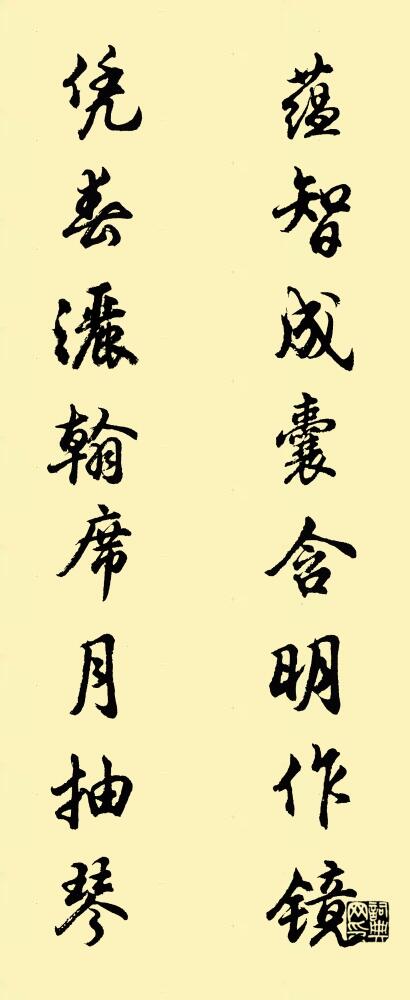 蕴智成囊含明作镜
凭春洒翰席月抽琴
詞典网印